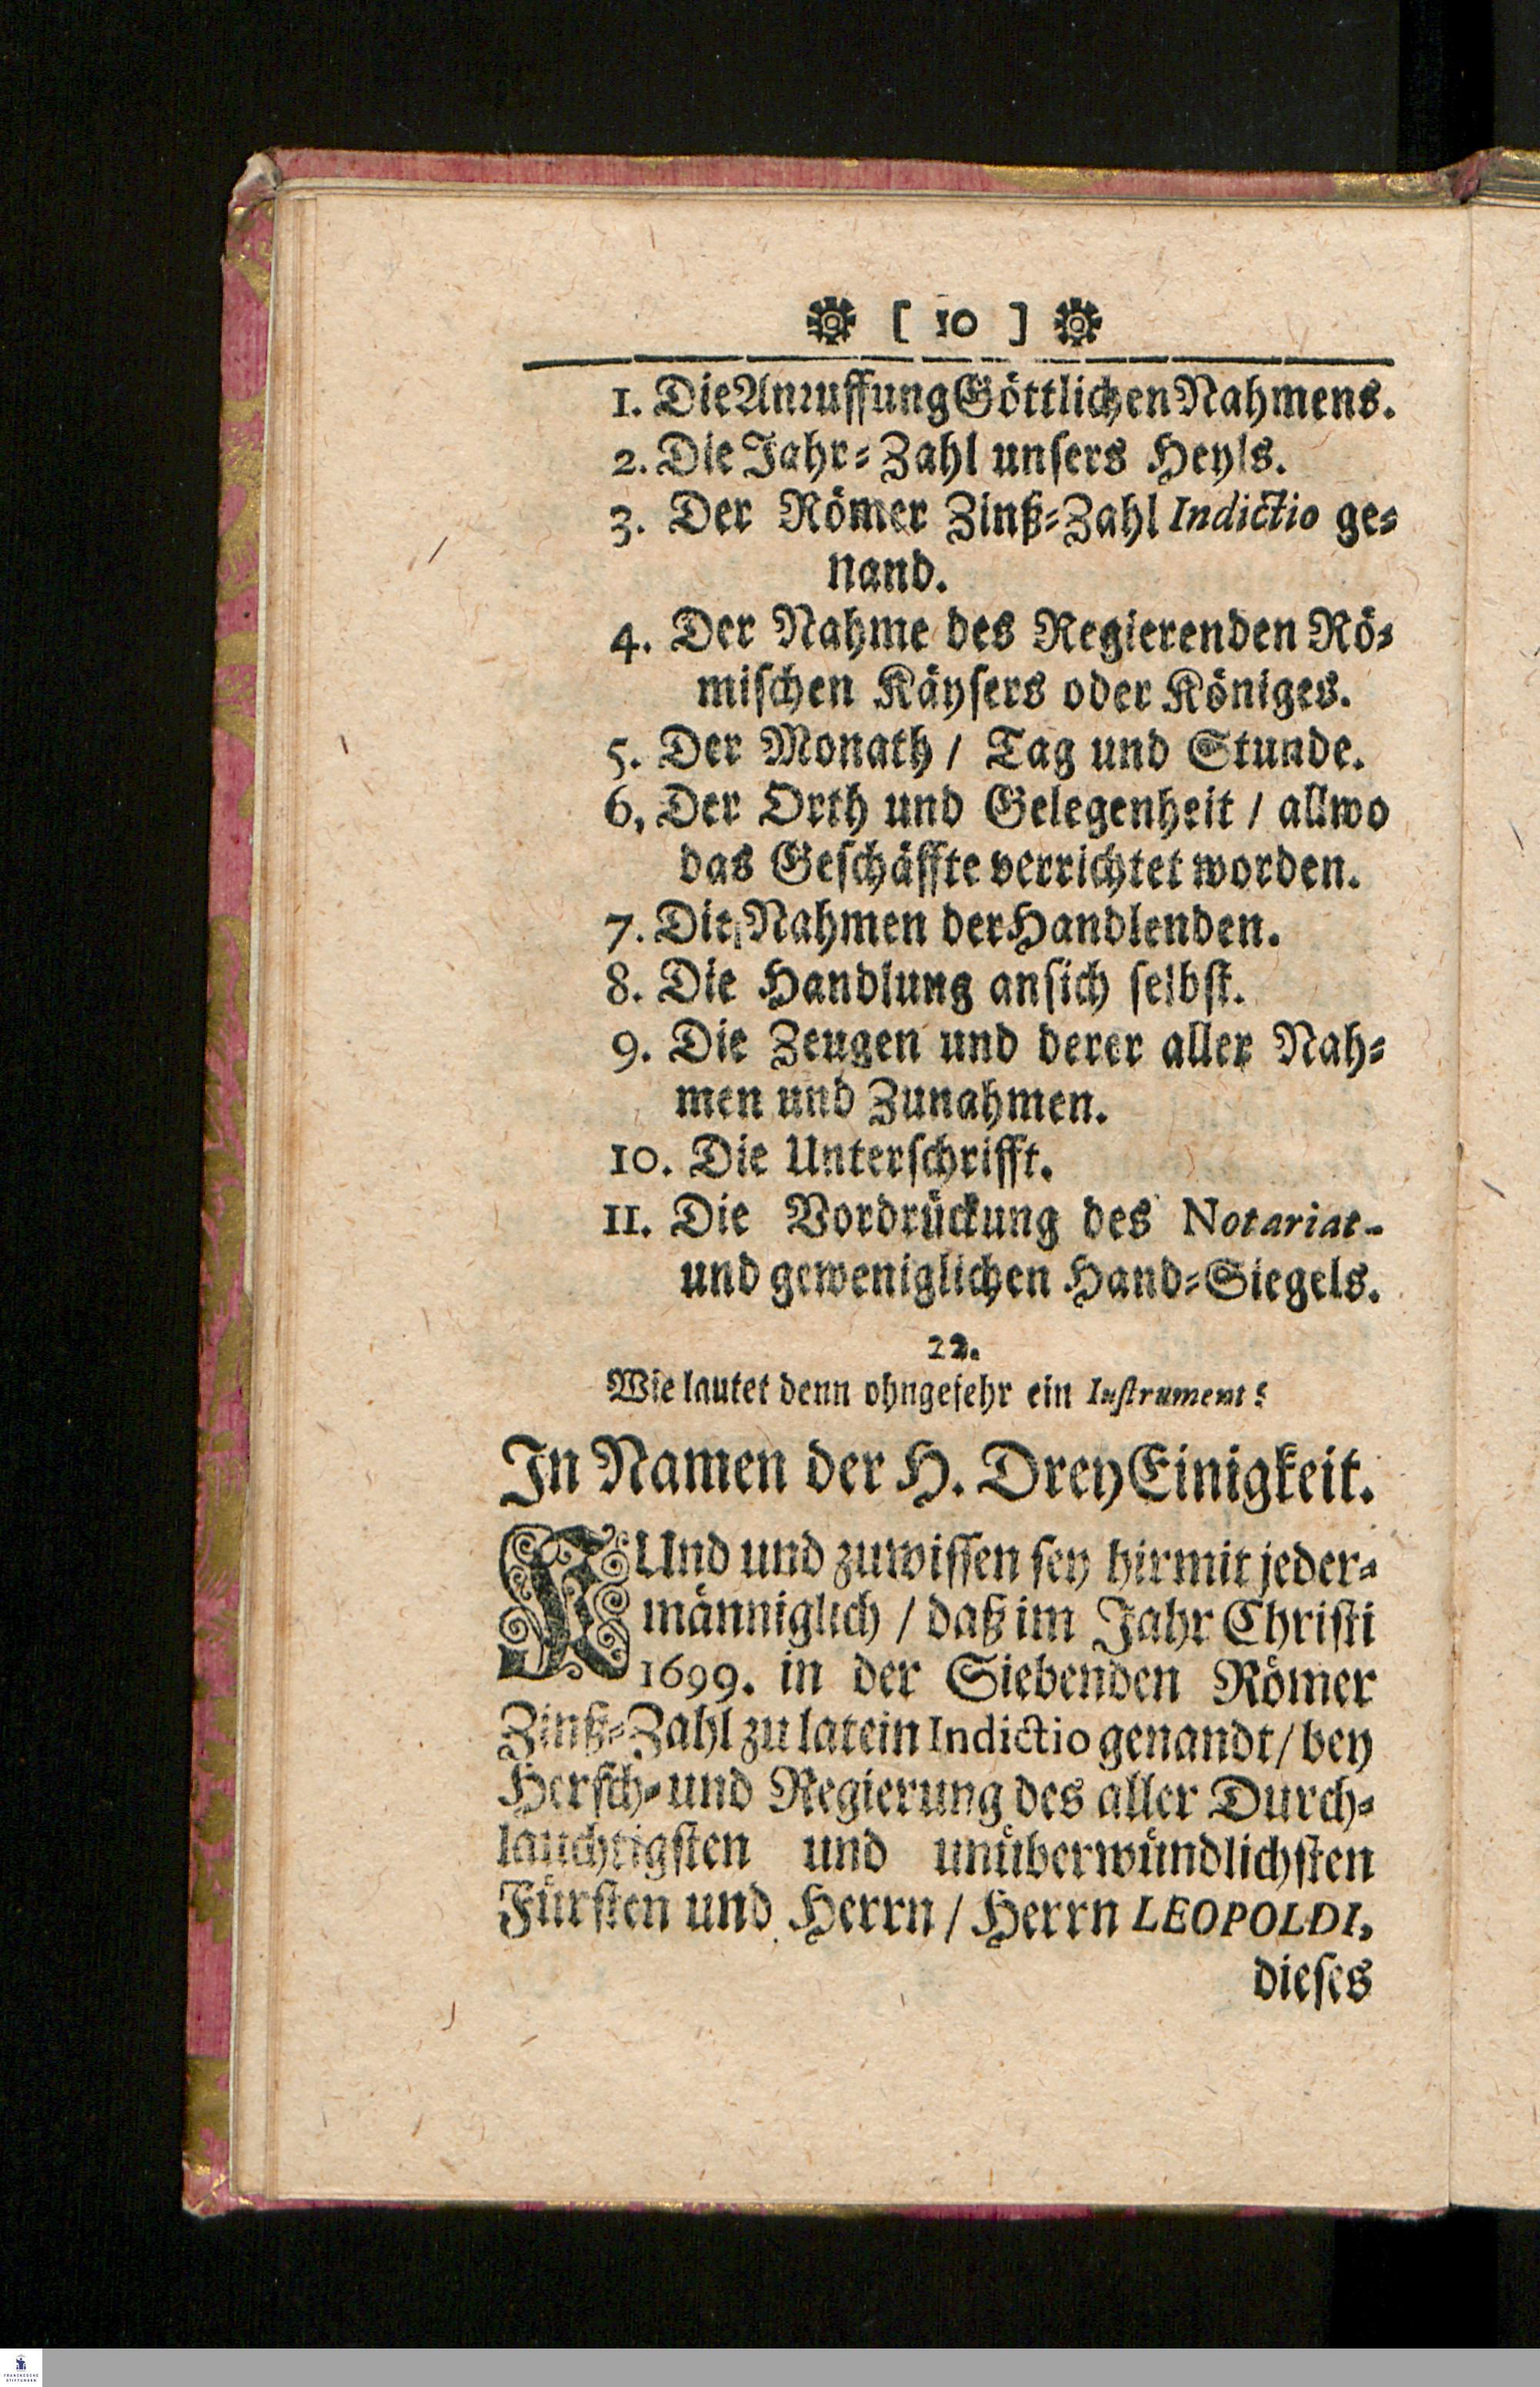 [ 10 ]
1. Die Anruffung Göttlichen Nahmens.
2. Die Jahr-Zahl unsers Heyls.
3. Der Römer Zinß-Zahl Indictio ge-
nand.
4. Der Nahme des Regierenden Rö-
mischen Käysers oder Königes.
5. Der Monath / Tag und Stunde.
6, Der Orth und Gelegenheit / allwo
das Geschäffte verrichtet worden.
7. Die Nahmen der Handlenden.
8. Die Handlung an sich selbst.
9. Die Zeugen und derer aller Nah-
men und Zunahmen.
10. Die Unterschrifft.
11. Die Vordrückung des Notariat-
und geweniglichen Hand-Siegels.
22.
Wie lautet denn ohngefehr ein Instrument?
In Namen der H. DreyEinigkeit.
KUnd und zuwissen sey hirmit jeder-
männiglich / daß im Jahr Christi
1699. in der Siebenden Römer
Zinß-Zahl zu latein Indictio genandt / bey
Hersch- und Regierung des aller Durch-
lauchtigsten und unüberwündlichsten
Fürsten und Herrn / Herrn LEOPOLDI,
dieses
FRANCKESCHE
STIFTUNGEN